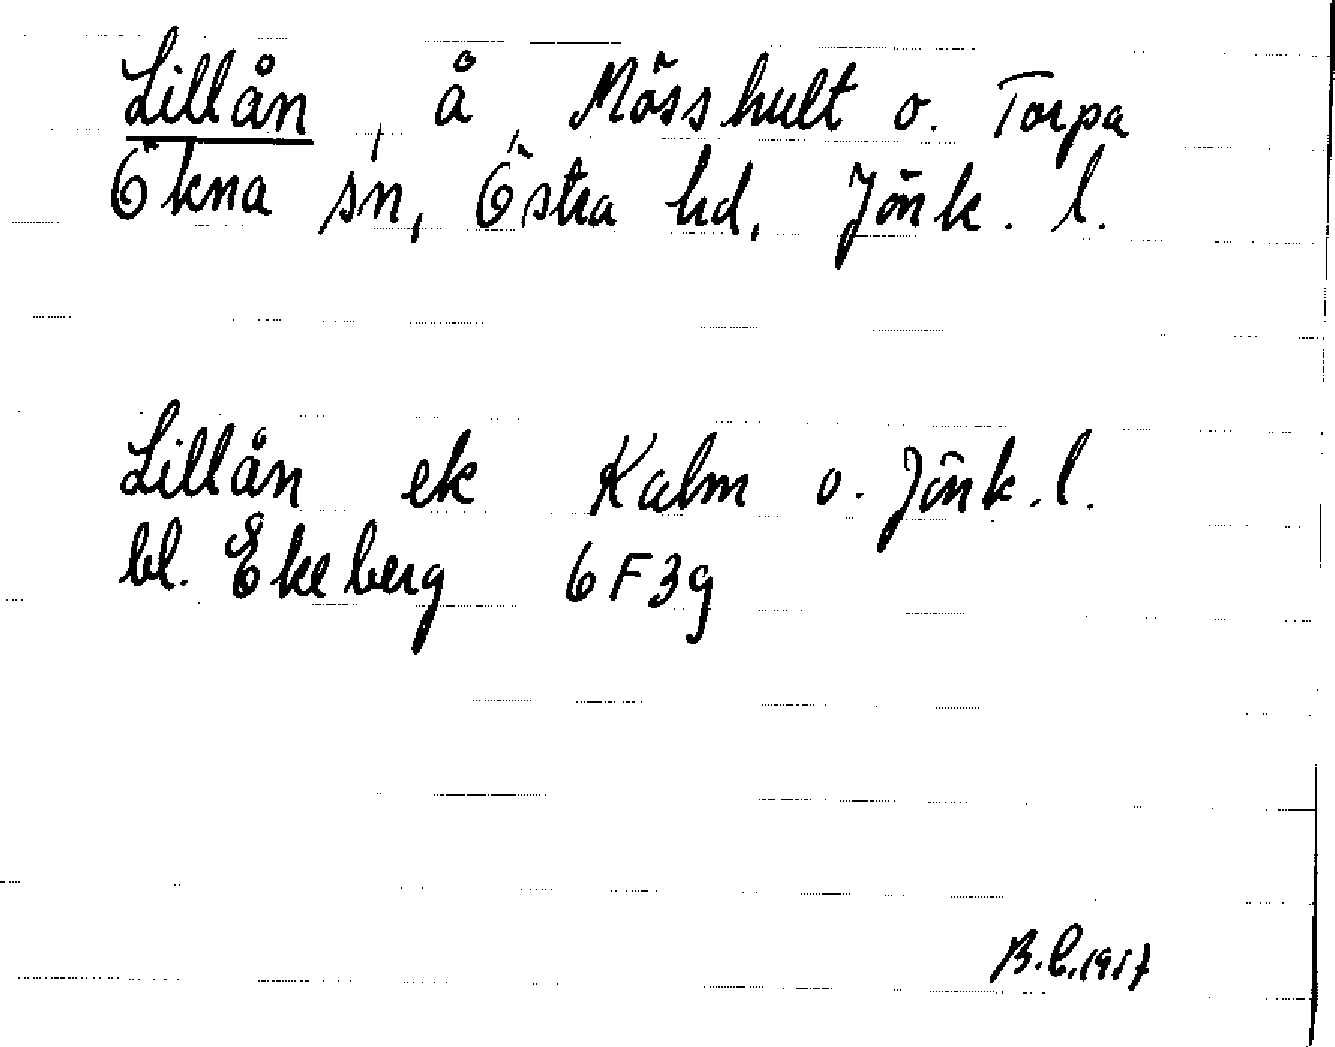 Lillån, å, Mösshult o. Torpa
Ökna sn, Östra hd, Jönk. l.
Lillån ek Kalm o. Jönk. l.
bl. Ekeberg 6F3g
B.L. 1957